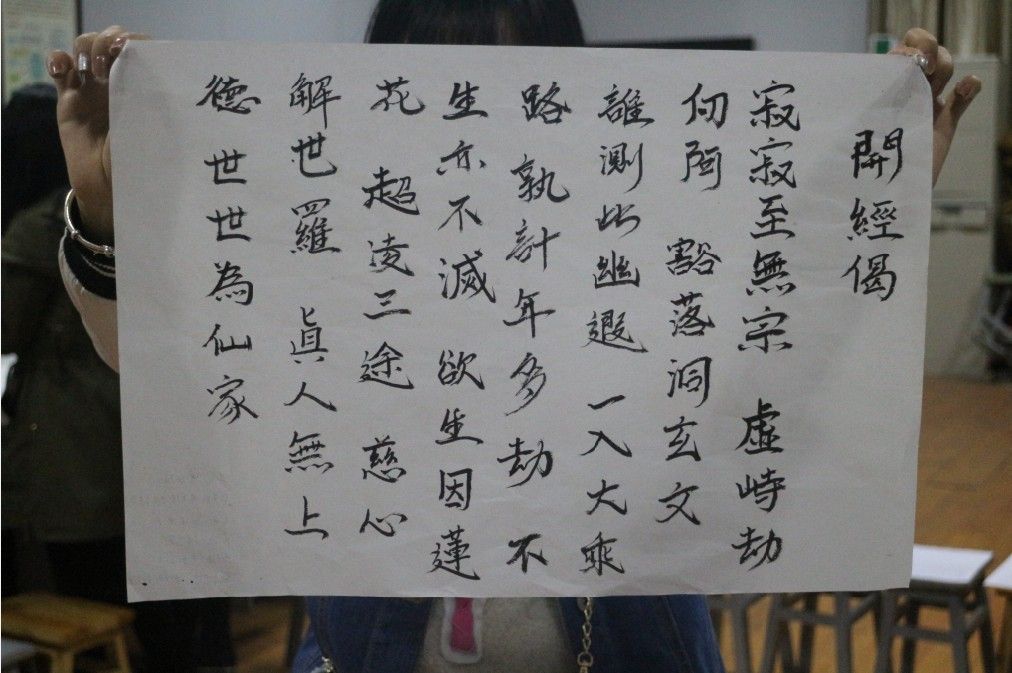 開經偈
寂寂至無宗 虛峙劫
仞阿 豁落洞玄文
誰測此幽遐 一入大乘
路 孰計年多劫 不
生亦不滅 欲生因蓮
花 超凌三途 慈心
解世羅 眞人無上
德 世世為仙家